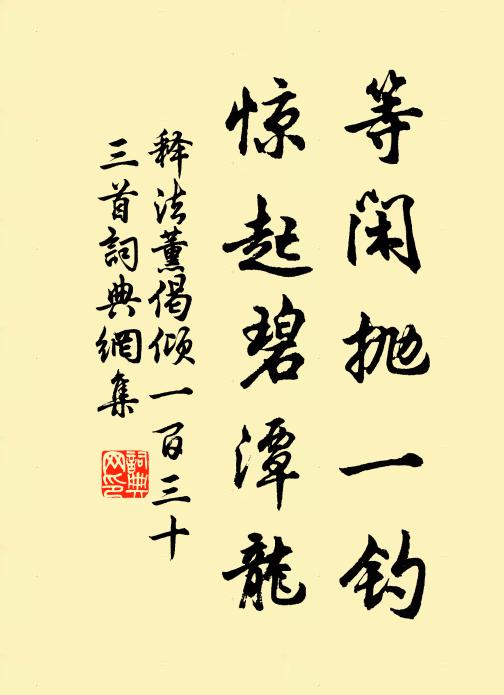 等闲抛一钓
惊起碧潭龙
释法薰偈倾一百三十
三首词典網集
詞典网印